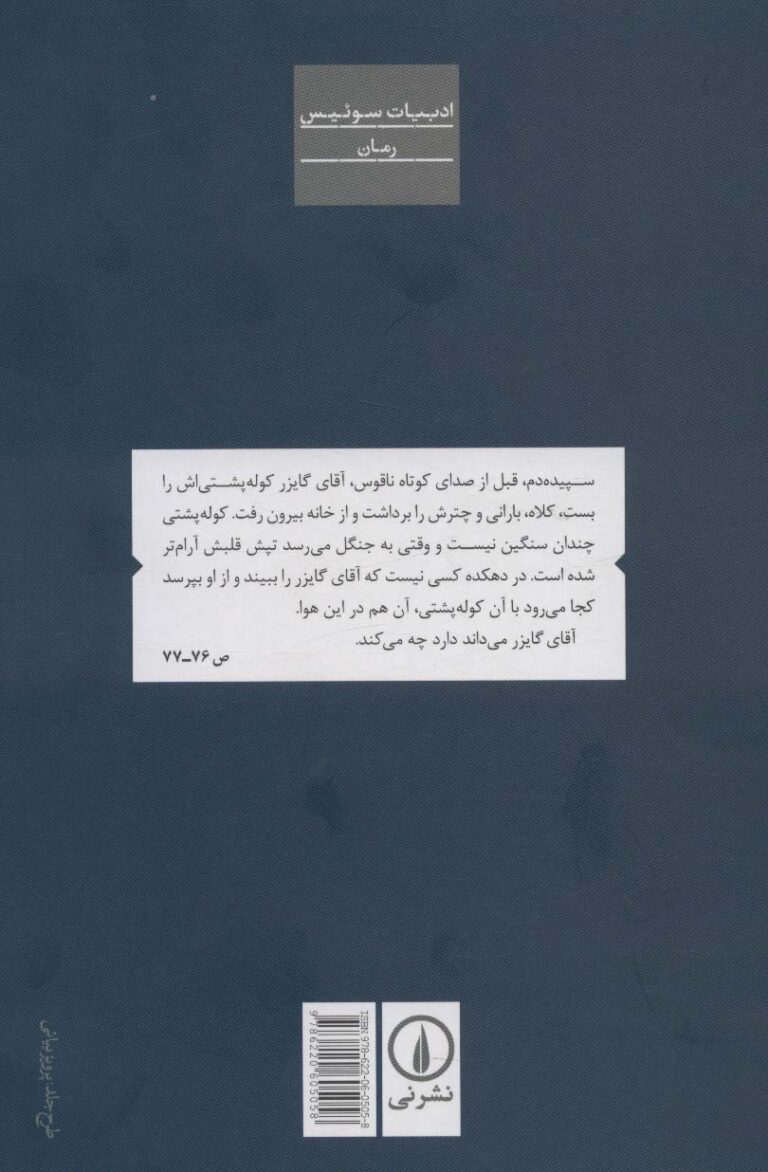 ادبیات سوئیس
رمان
سپیده‌دم، قبل از صدای کوتاه ناقوس، آقای گایزر کوله‌پشتی‌اش را
بست، کلاه، بارانی و چترش را برداشت و از خانه بیرون رفت. کوله‌پشتی
چندان سنگین نیست و وقتی به جنگل می‌رسد تپش قلبش آرام‌تر
شده است. در دهکده کسی نیست که آقای گایزر را ببیند و از او بپرسد
کجا می‌رود با آن کوله‌پشتی، آن هم در این هوا.
آقای گایزر می‌داند دارد چه می‌کند.
ص ۷۶ـ۷۷
نشرنی
ISBN 978-622-06-0505-8
9 786220 605058
طرح جلد: پرویز بیانی